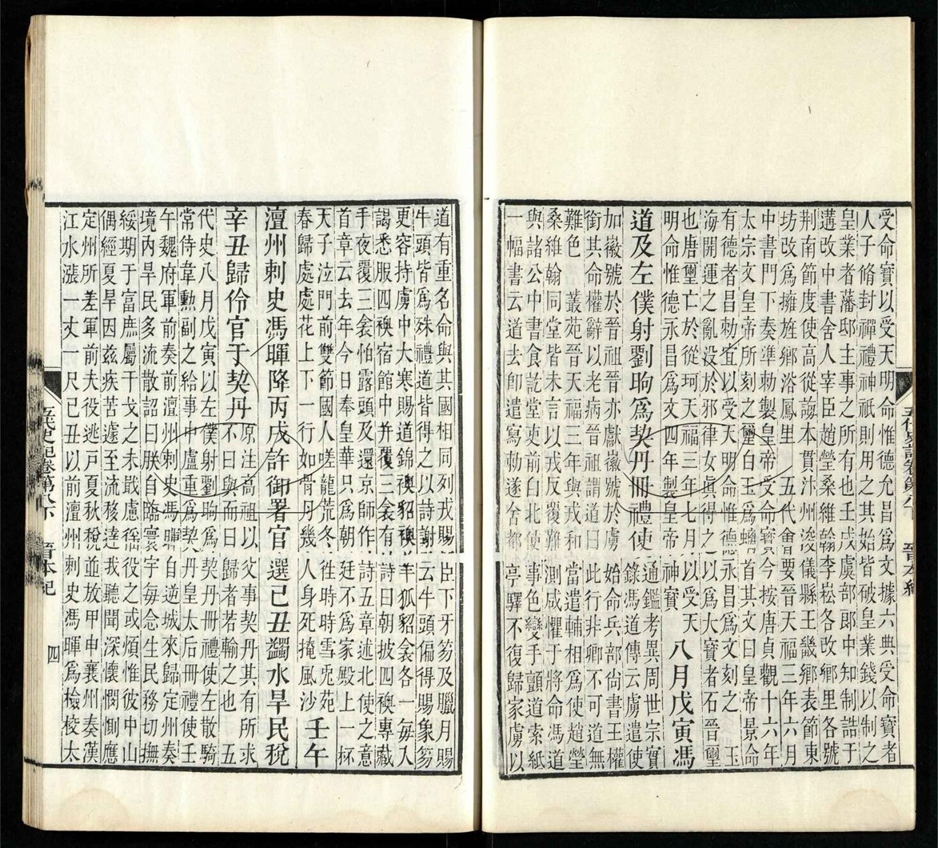 受命寶以受天明命惟德允昌爲文據六典受命寶者
人子脩封禪禮神祇則用之其始皆破皇業錢以制之
皇業者藩邸主事之所有也壬戌虞部郎中知制誥于
遘改中書舍人宰臣趙瑩桑維翰李崧各改鄉里各號
荆南節度使高從誨本貫汴州浚儀縣王畿鄉表節東
坊改爲擁旌鄉浴鳳里 五代會要晉天福三年六月
中書門下奏準勅製皇帝受命寶今按唐貞觀十六年
太宗文皇帝所刻之璽白玉爲螭首其文曰皇帝景命
有德者昌勅宜以受天明命惟德永昌爲文刻之 玉
海開運之亂没於邪律女眞得之以爲大寶者石晉璽
也唐璽亡於從珂天福三年七月以受天
明命惟德永昌爲文四年製皇帝神寶
八月戊寅馮
道及左僕射劉昫爲契丹冊禮使
通鑑考異周世宗實
錄馮道傳云虜遣使
加徽號於晉祖晉亦獻徽號於虜始命兵部尚書王權
銜其命權辭以老病晉祖謂道曰此行非卿不可道無
難色 叢苑晉天福三年與戎和當遣輔相爲使趙瑩
桑維翰同堂皆未言以戎和反覆難測咸懼于將命馮道
與諸公中書食訖堂吏前白北使事色變手顫道索紙
一幅書云道去卽遣寫勅遂舍都亭驛不復歸家虜以
五代史記卷第八下 晉本紀
道有重名命與其國相同列戎賜臣下牙笏及臘月賜
牛頭皆爲殊禮道皆得之以詩謝云牛頭偏得賜象笏
更容持虜中大寒賜道錦襖貂襖羊狐貂衾各一每入
謁悉服四襖宿館中並覆三衾有詩曰朝披四襖專藏
手夜覆三衾怕露頭及還京師作詩五章述北使之意
首章云去年今日奉皇華只爲朝廷不爲家殿上一杯
天子泣門前雙節國人嗟龍荒冬往時時雪兎苑
春歸處處花上下一行如骨肉幾人身死掩風沙
壬午
澶州刺史馮暉降丙戌許御署官選己丑蠲水旱民稅
辛丑歸伶官于契丹
原注高祖以父事契丹其有所求
不曰與而曰歸者若輸之也 五
代史八月戊寅以左僕射劉昫爲契丹冊禮使左散騎
常侍韋勳副之給事中盧重爲契丹皇太后冊禮使壬
午魏府軍前奏前澶州刺史馮暉自逆城來歸定州奏
境内旱民多流散詔曰朕自臨寰宇每念生民務切撫
綏期于富庶屬干戈之未戢慮徭役之或煩惟彼中山
偶經夏旱因兹疾苦遽至流移達我聽聞深懷憫惻應
定州所差軍前夫役逃戸夏秋稅並放甲申襄州奏漢
江水漲一丈一尺己丑以前澶州刺史馮暉爲檢校太
五代史記卷第八下 晉本紀 四